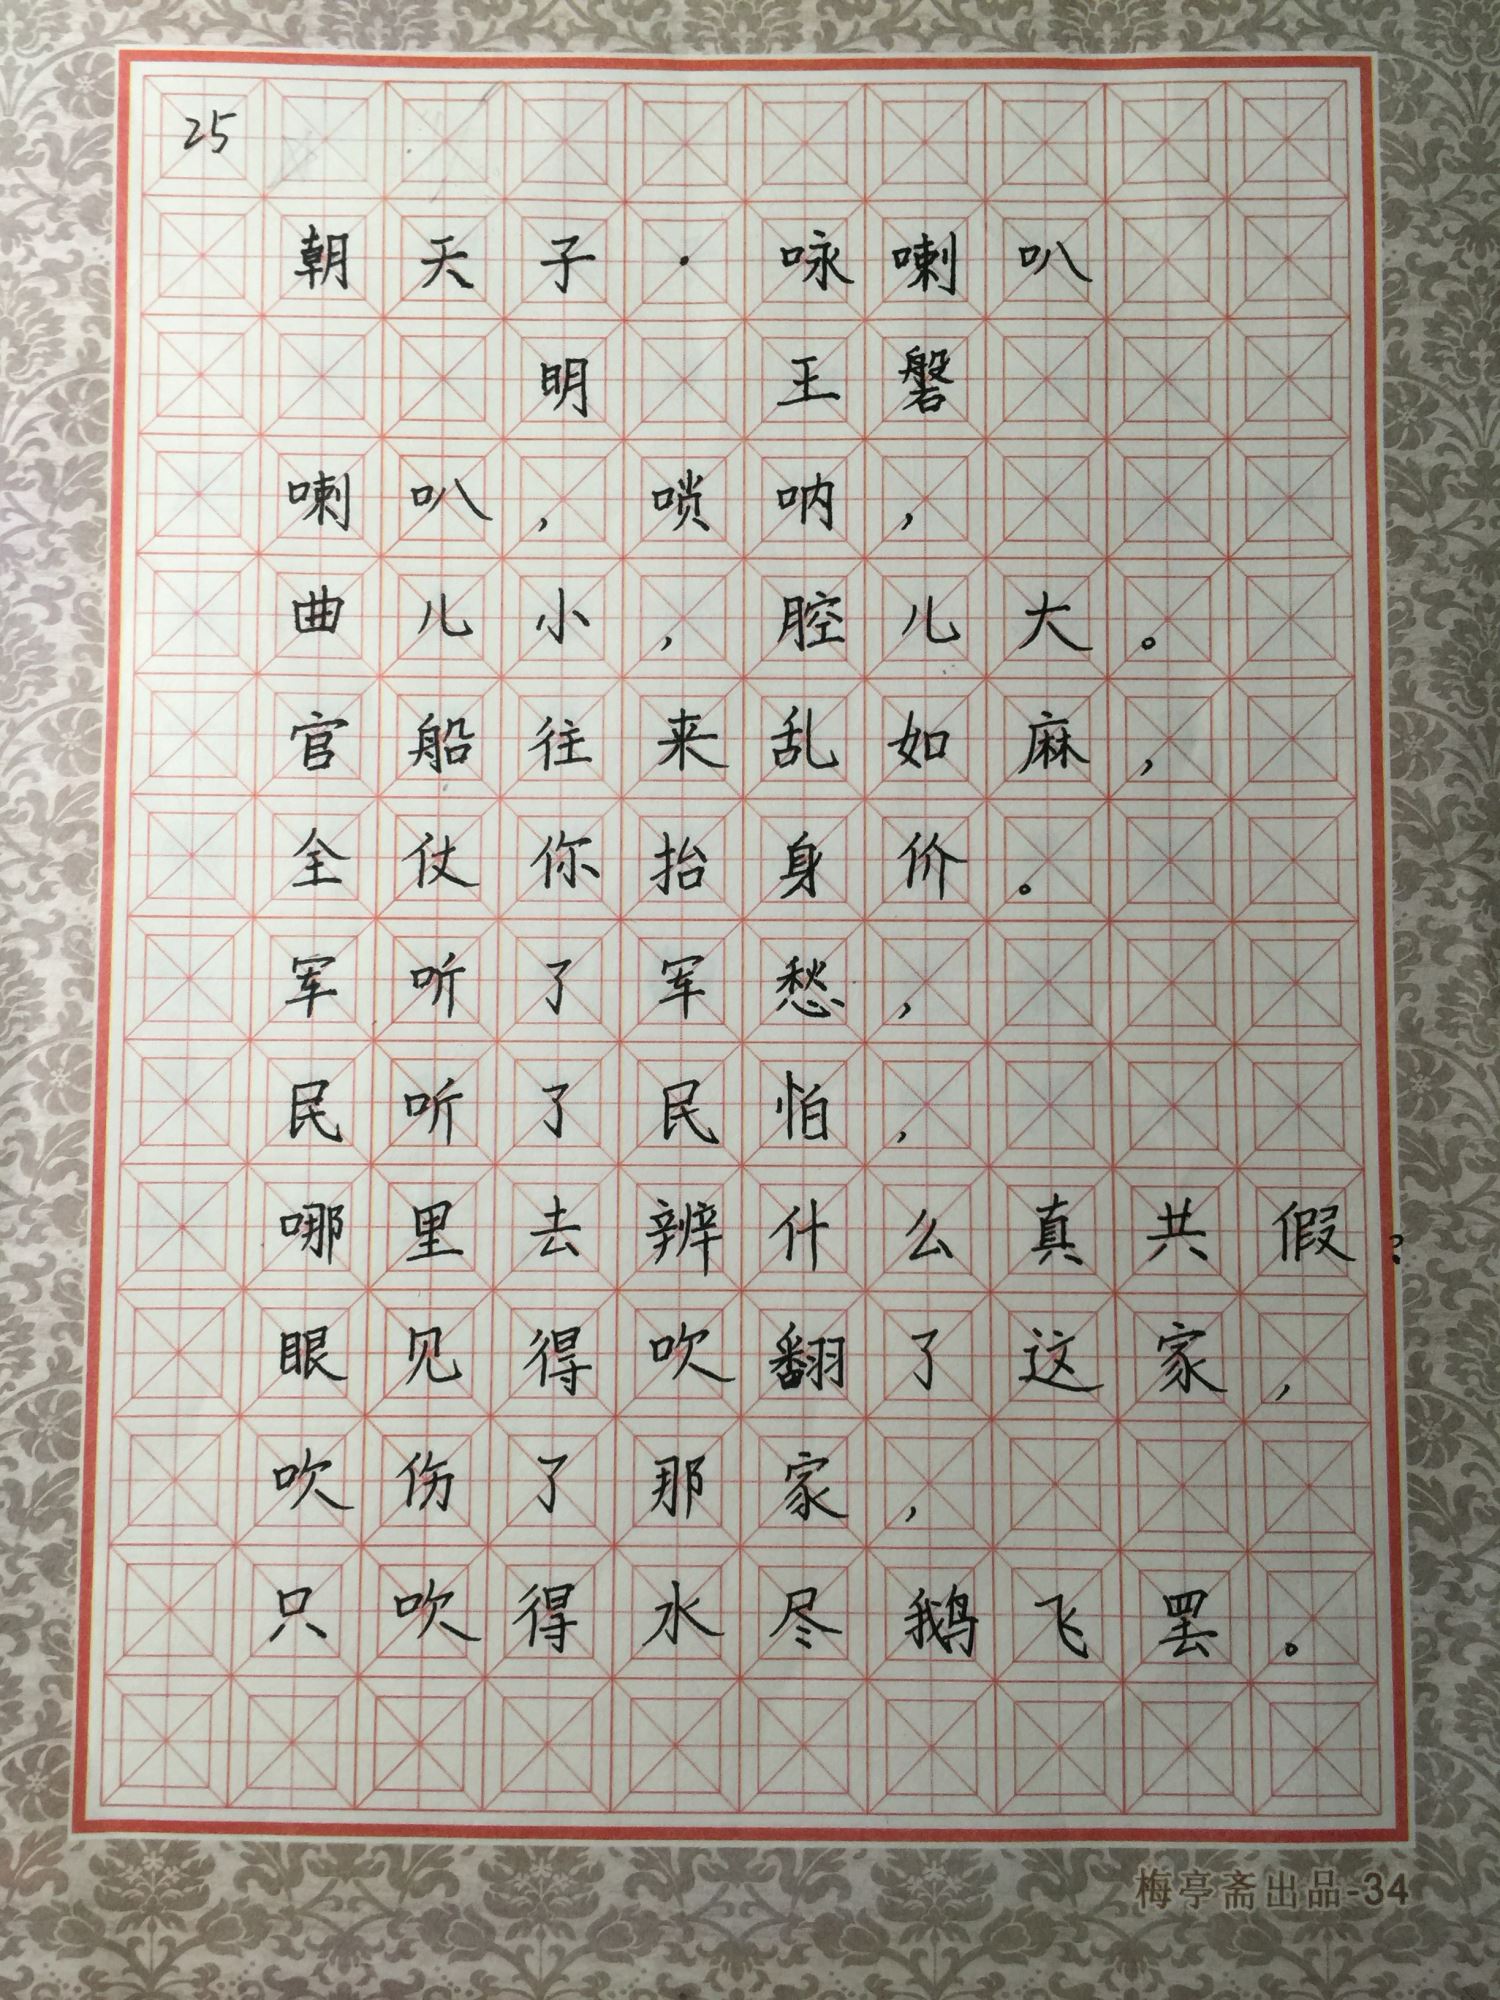 25
朝天子·咏喇叭
明 王磐
喇叭，唢呐，
曲儿小，腔儿大。
官船往来乱如麻，
全仗你抬身价。
军听了军愁，
民听了民怕，
哪里去辨什么真共假？
眼见得吹翻了这家，
吹伤了那家，
只吹得水尽鹅飞罢。
梅亭斋出品-34